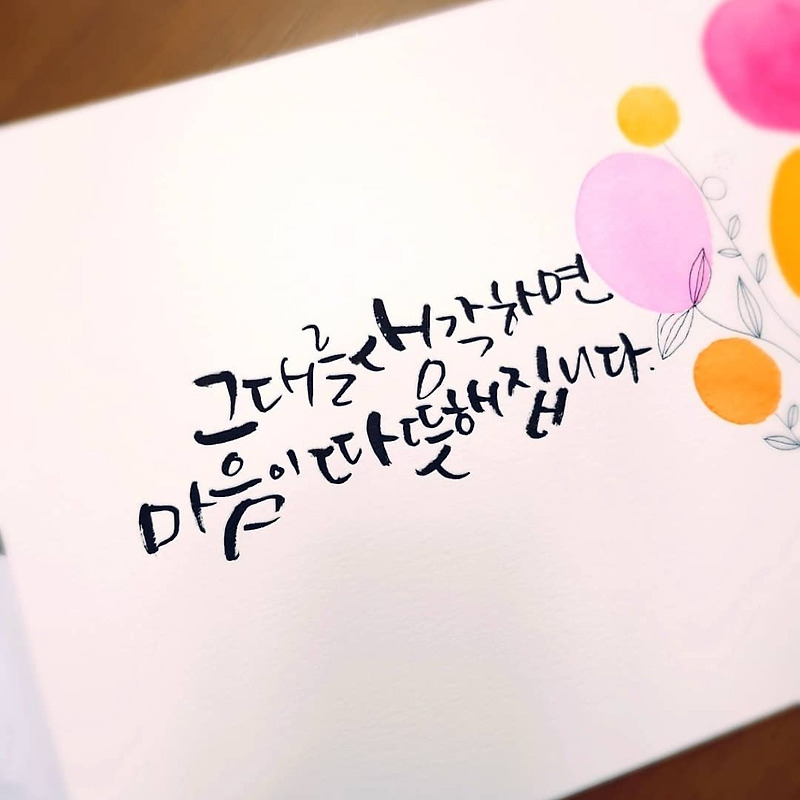 그대를 생각하면
마음이 따뜻해집니다.